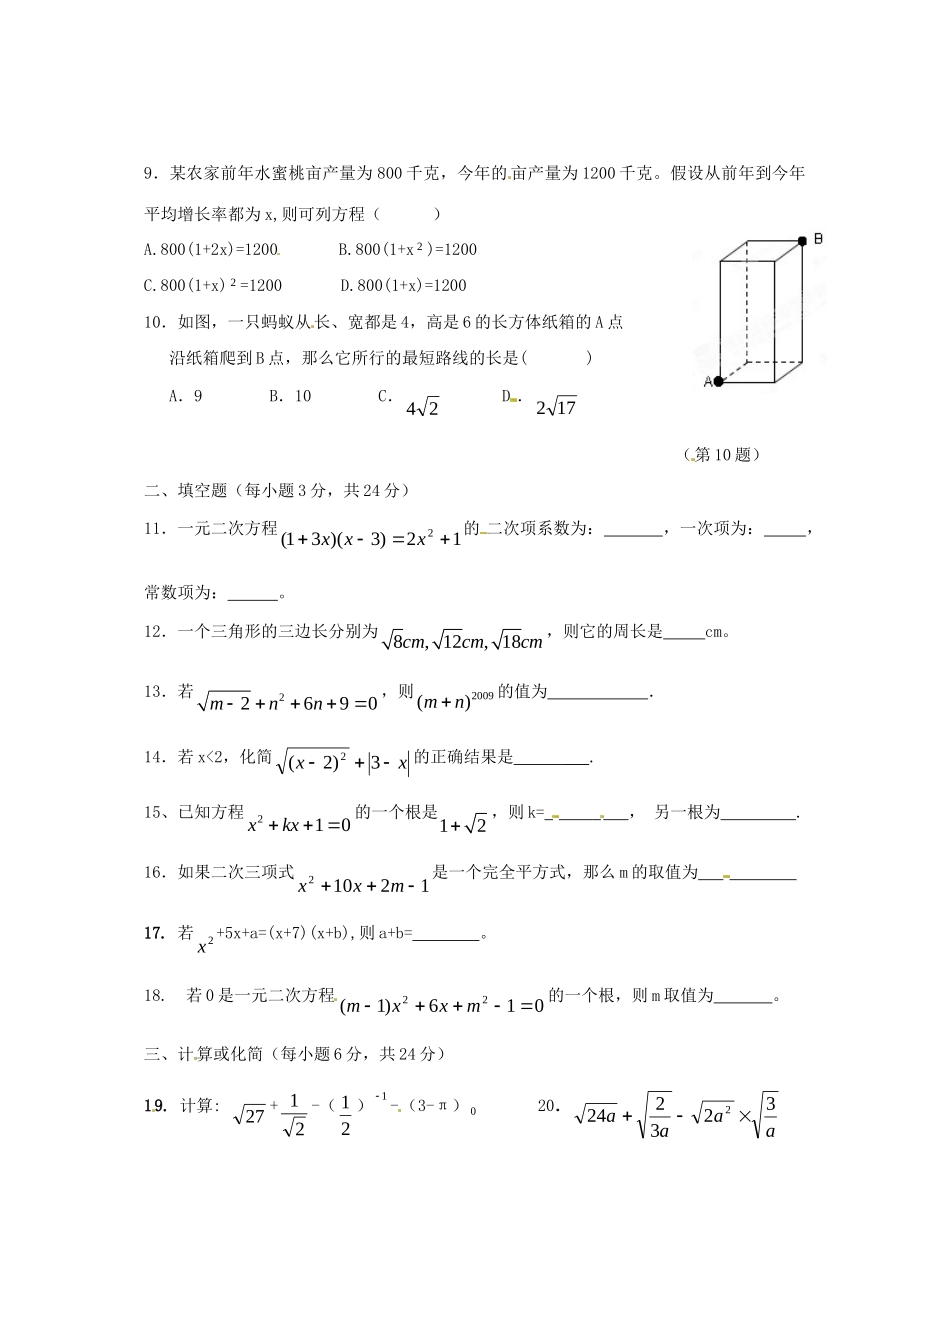 9．某农家前年水蜜桃亩产量为 800 千克，今年的亩产量为 1200 千克。假设从前年到今年
平均增长率都为 x,则可列方程（      ）
A.800(1+2x)=1200      B.800(1+x²)=1200
C.800(1+x)²=1200      D.800(1+x)=1200
B
10．如图，一只蚂蚁从长、宽都是 4，高是 6 的长方体纸箱的 A 点
沿纸箱爬到 B 点，那么它所行的最短路线的长是(      )
A
A．9      B．10      C．4√2      D．2√17
（第 10 题）
二、填空题（每小题 3 分，共 24 分）
11．一元二次方程(1+3x)(x−3)=2x²+1的二次项系数为：_______，一次项为：_____，
常数项为：______。
12．一个三角形的三边长分别为√8cm,√12cm,√18cm，则它的周长是_____cm。
13．若√m−2+n²+6n+9=0，则(m+n)²⁰⁰⁹的值为____________．
14．若 x<2，化简√(x−2)²+|3−x|的正确结果是_________.
15、已知方程x²+kx+1=0的一个根是1+√2，则 k=__________， 另一根为_________.
16．如果二次三项式x²+10x+2m−1是一个完全平方式，那么 m 的取值为____________
17. 若x²+5x+a=(x+7)(x+b),则 a+b=________。
18.  若 0 是一元二次方程(m−1)x²+6x+m²−1=0的一个根，则 m 取值为_______。
三、计算或化简（每小题 6 分，共 24 分）
19. 计算：√27+1/√2-（1/2）⁻¹-（3-π）₀      20．√24a+√2/3a−√2a²×√3/a